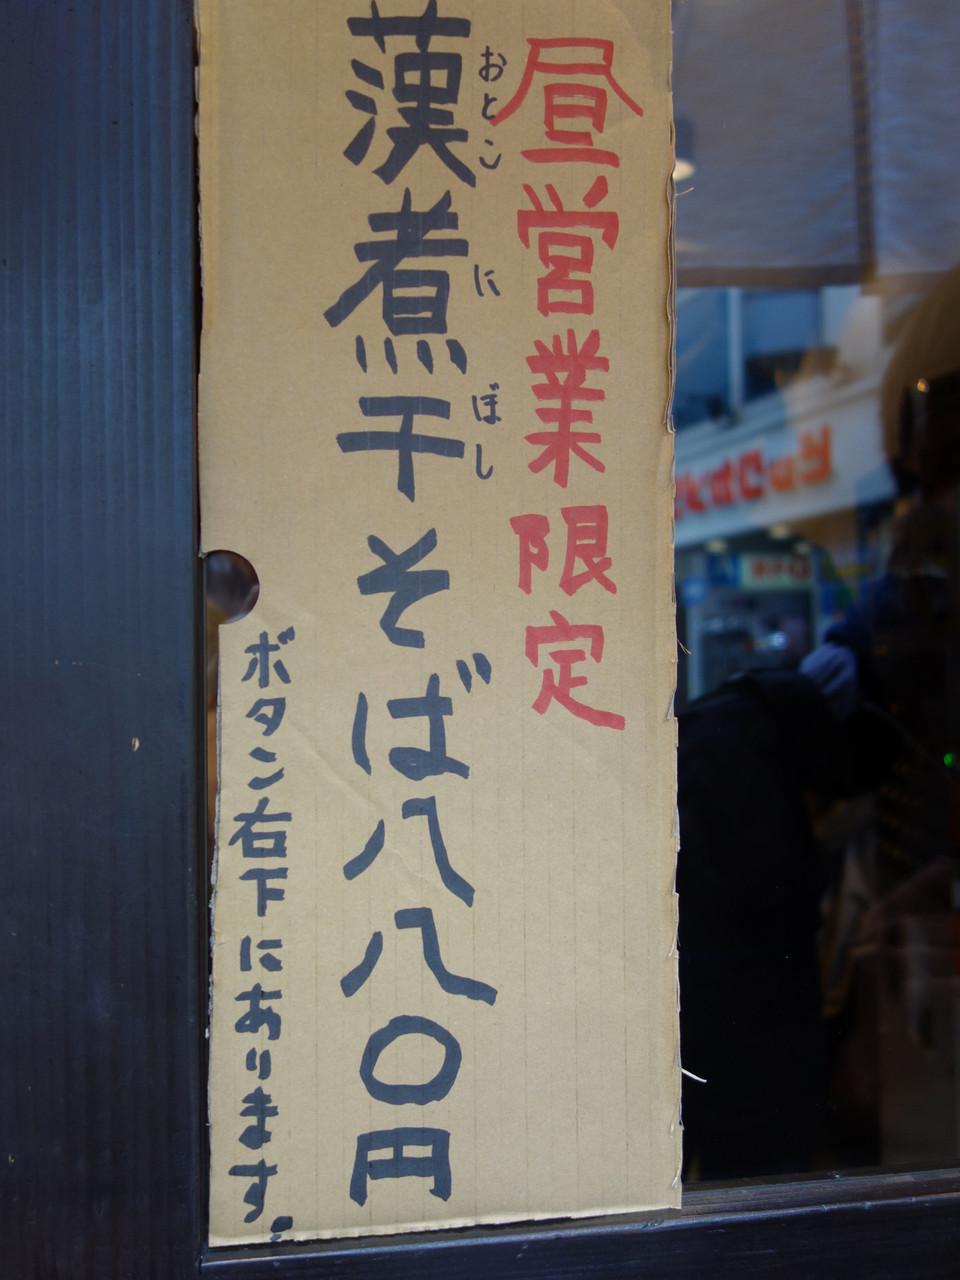 昼営業限定
漢煮干そば八八〇円
おとこ に ぼし
ボタン右下にあります。